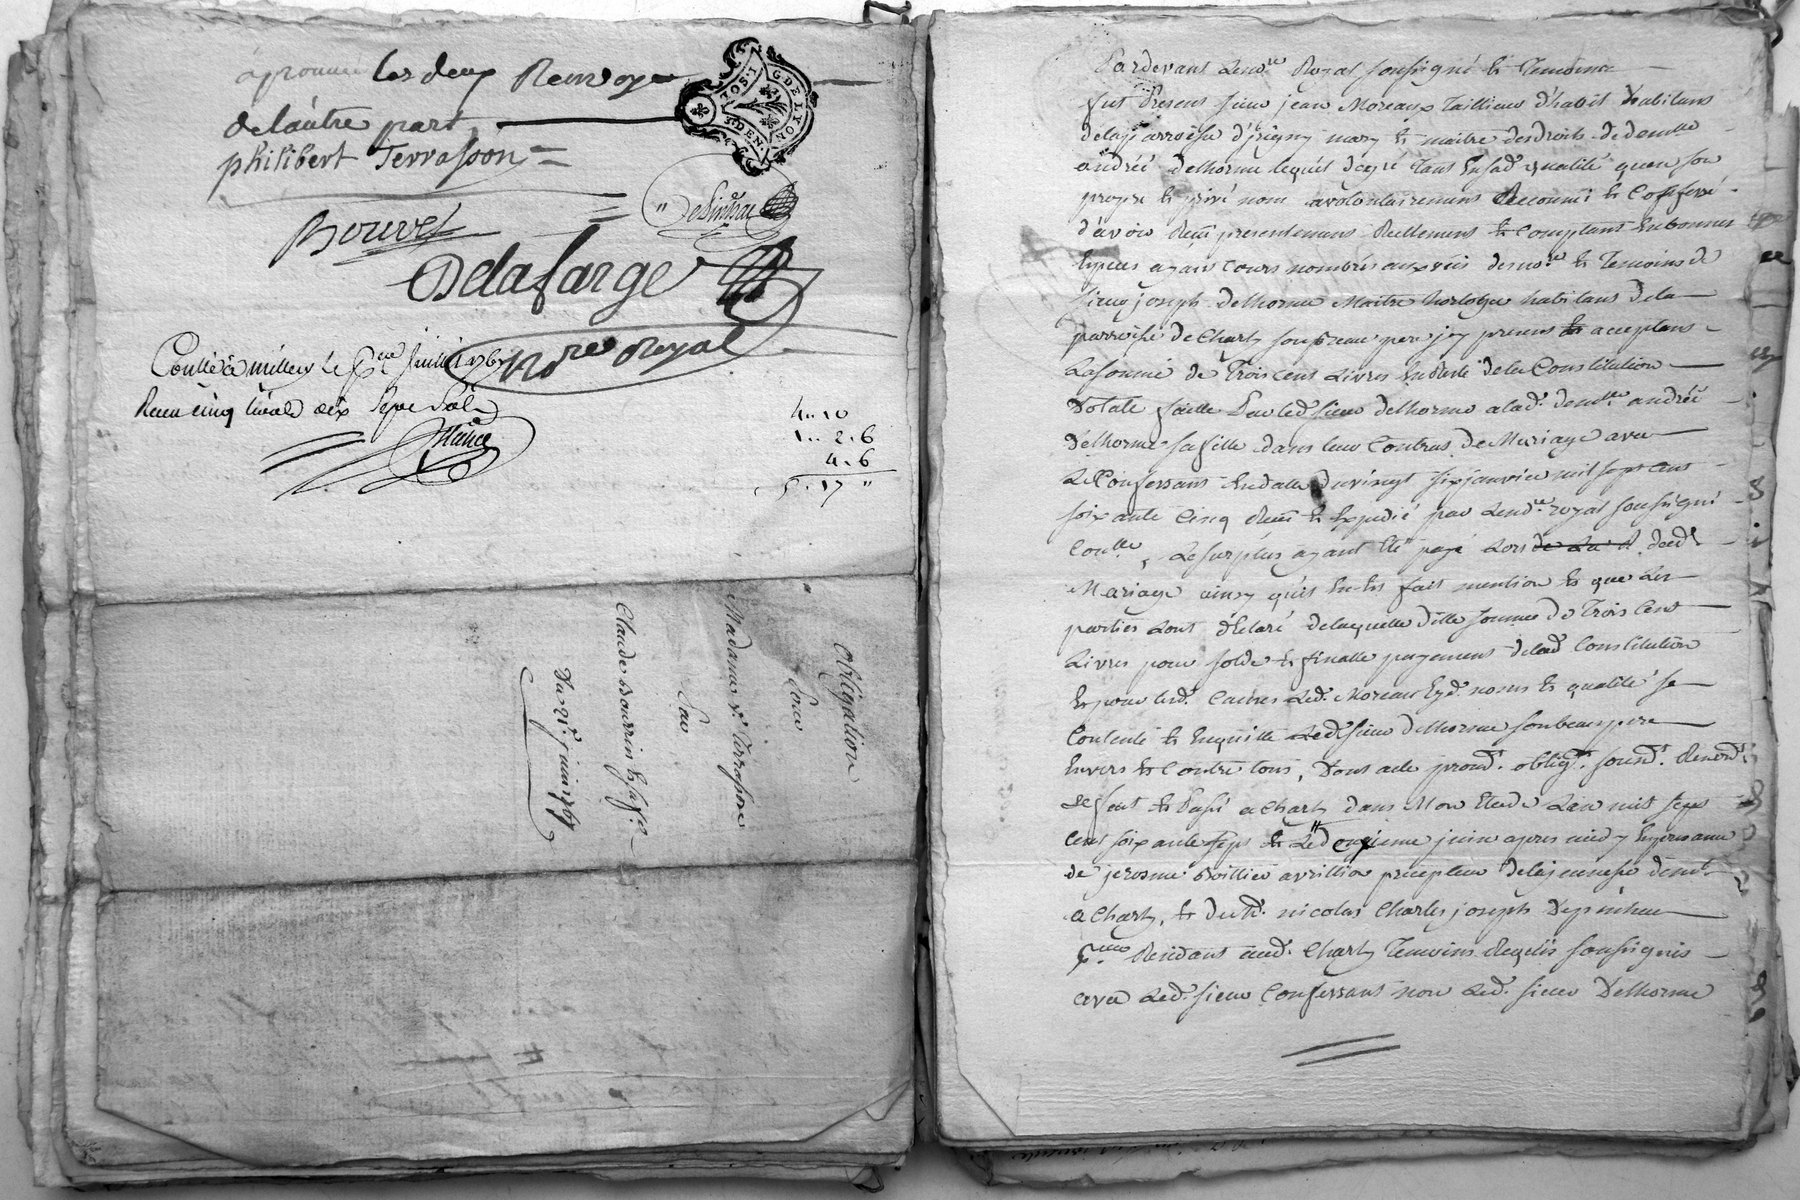 aprouvé les deux Renvoye
de lautre part,
philibert Terrasson
GDE LYON
DEN.
Bouvet
Delafarge
No.re Royal
Contlé à millery le juillet 1767
Reçu cinq livres dix sept sols
4 .. 10
1 .. 2 . 6
4 . 6
5 . 17 "
obligation
pour
Madame Ve. Terrasson
Sur
Claude Bourrin & sa fe.
Du 21e. juin 1767
Pardevant Leno.re Royal soussigné & Temoins
fut Present sieur jean Moreaux Tailleur d'habit habitant
delaparroisse d'jrigny mary & maitre des droits de demlle
andréé delhorme lequel degré Tant Ensad. qualité quen son
propre & privé nom a volontairement Reconnu & Confessé
d'avoir Reçu presentement Reellement & Comptant En bonnes
Espèces ayant Cours nombrés aux vües deno.re & Temoins de
sieur joseph delhorme Maitre horloger habitant dela
parroisse de Charly son beau pere jcy present & acceptant
La somme de Trois cent Livres En deduction de la Constitution
Dotale faitte Par led. sieur delhorme a lad. demlle. andréé
delhorme sa fille dans leur Contrat de Mariage avec
Le Confessant En datte du vingt six janvier mil sept cent
soixante cinq Reçu & Expedié par Leno.re royal soussigné
Contlle, Le surplus ayant été payé Lors dud.
Mariage ainsy qu'il En Est fait mention & que Les
parties Lont d'Eclaré delaquelle ditte somme de Trois Cent
Livres pour solde & finalle payement delad Constitution
Led. Moreau Esd. noms & qualité se
Contente & Enquitte Led sieur delhorme son beau pere
Envers & Contre tous, Dont acte promd. obligd. soumd. Renond.
& fait & Passé a Charly dans Mon Etude Lan mil sept
cent soixante sept & Le onzieme juin apres midy En presence
de jerosme precepteur dela jeunesse demt.
a Charly, & de nicolas Charles joseph
Residant aud. Charly Temoins Requis soussignés
avec Led. sieur Confessant non Led. sieur Delhorme